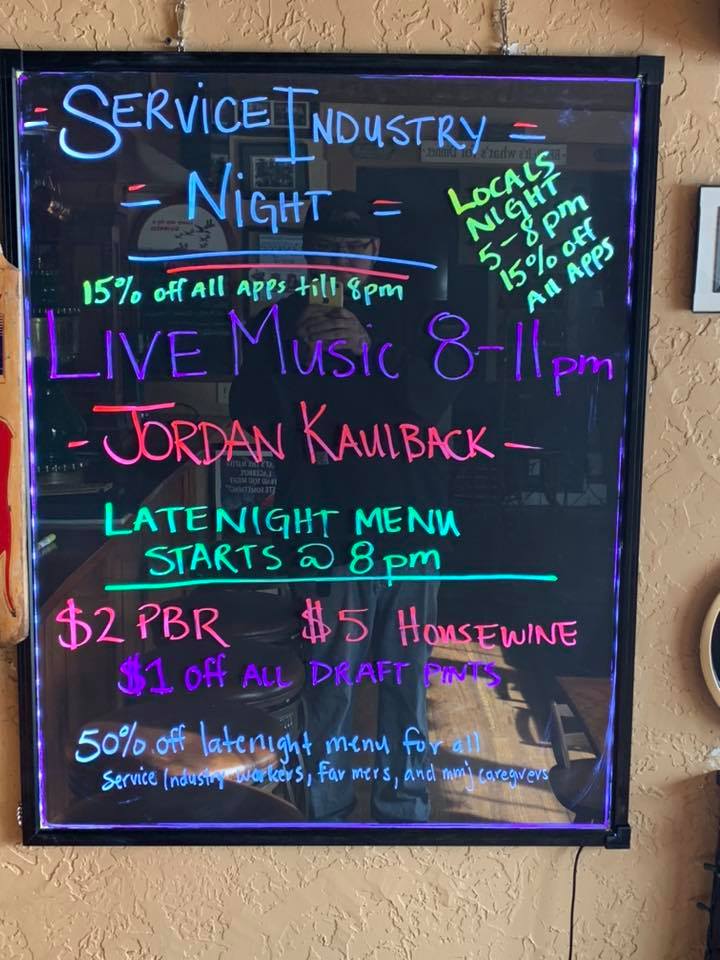 SERVICE INDUSTRY
NIGHT
LOCALS
NIGHT
5-8pm
15% off
All Apps
15% off All Apps till 8pm
LIVE Music 8-11pm
- JORDAN KAULBACK -
LATENIGHT MENU
STARTS @ 8pm
$2 PBR $5 HOUSEWINE
$1 off ALL DRAFT PINTS
50% off latenight menu for all
Service Industry workers, Farmers, and mmj caregivers